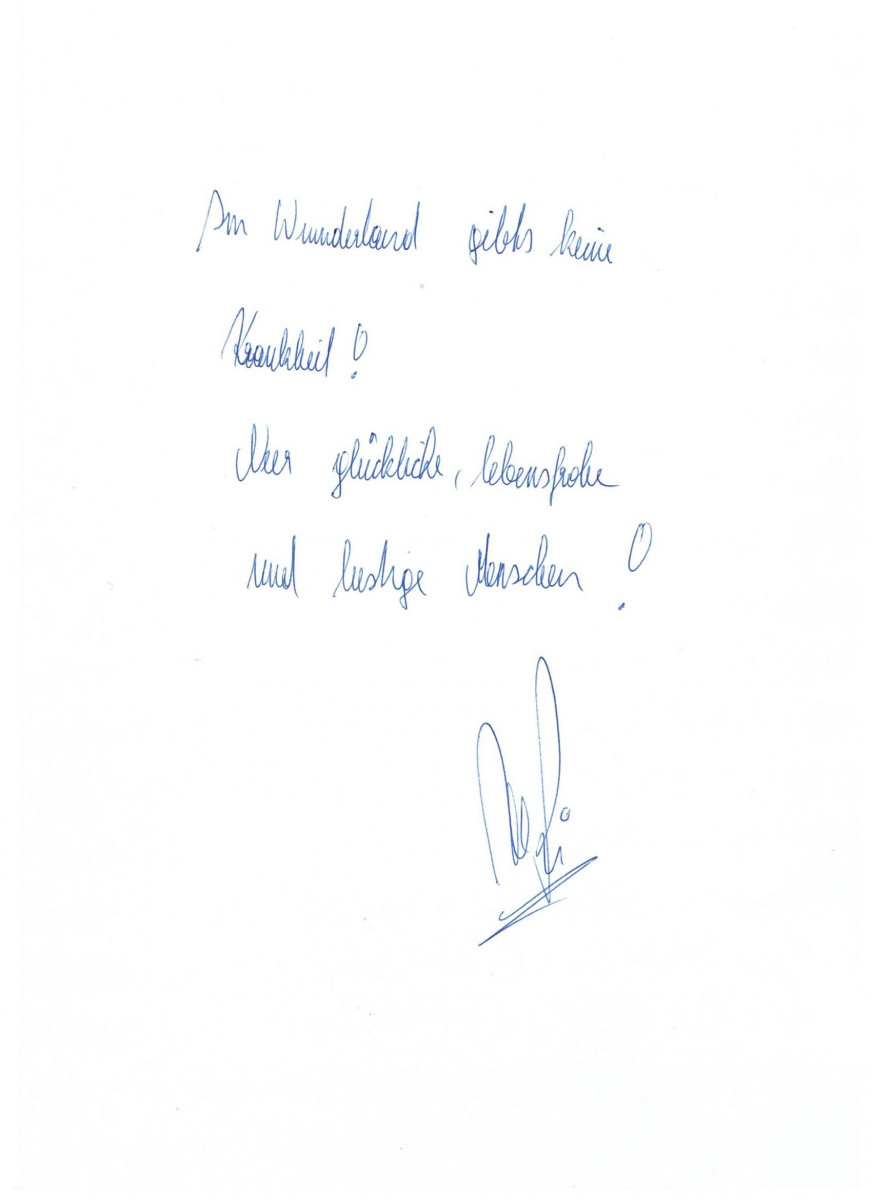 Im Wunderland gibts keine
Krankheit!
Nur glückliche, lebensfrohe
und lustige Menschen!